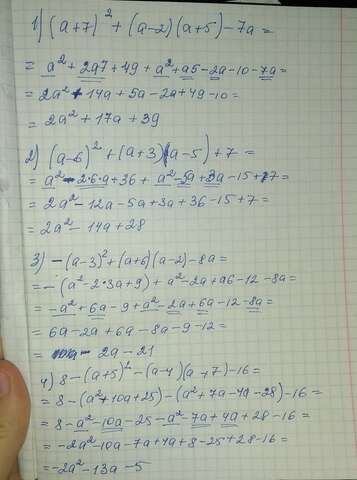 1) (a+7)² + (a-2)(a+5) - 7a =
= a² + 2a7 + 49 + a² + a5 - 2a - 10 - 7a =
= 2a² + 14a + 5a - 2a + 49 - 10 =
= 2a² + 17a + 39
2) (a-6)² + (a+3)(a-5) + 7 =
= a² - 2·6·a + 36 + a² - 5a + 3a - 15 + 7 =
= 2a² - 12a - 5a + 3a + 36 - 15 + 7 =
= 2a² - 14a + 28
3) -(a-3)² + (a+6)(a-2) - 8a =
= -(a² - 2·3a + 9) + a² - 2a + a6 - 12 - 8a =
= -a² + 6a - 9 + a² - 2a + 6a - 12 - 8a =
= 6a - 2a + 6a - 8a - 9 - 12 =
= 2a - 21
4) 8 - (a+5)² - (a-4)(a+7) - 16 =
= 8 - (a² + 10a + 25) - (a² + 7a - 4a - 28) - 16 =
= 8 - a² - 10a - 25 - a² - 7a + 4a + 28 - 16 =
= -2a² - 10a - 7a + 4a + 8 - 25 + 28 - 16 =
= -2a² - 13a - 5